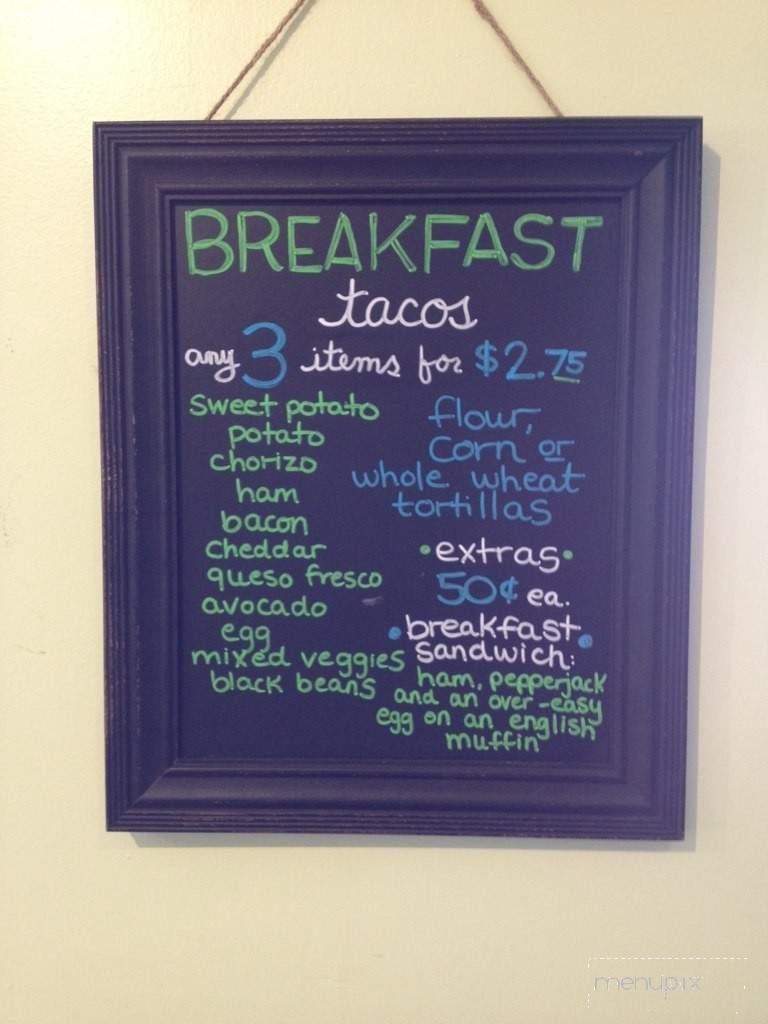 BREAKFAST
tacos
any 3 items for $2.75
sweet potato
potato
chorizo
ham
bacon
cheddar
queso fresco
avocado
egg
mixed veggies
black beans
flour,
corn or
whole wheat
tortillas
•extras•
50¢ ea.
•breakfast•
sandwich:
ham, pepperjack
and an over-easy
egg on an english
muffin
menupix